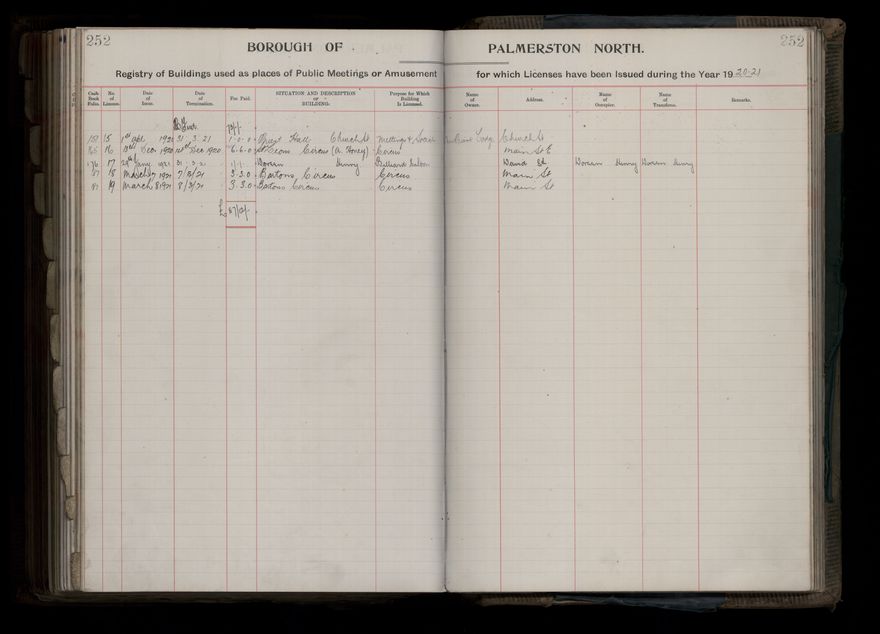 252
BOROUGH OF
PALMERSTON NORTH.
252
Registry of Buildings used as places of Public Meetings or Amusement
for which Licenses have been Issued during the Year 1920-21
Cash Book Folio. No. of License. Date of Issue. Date of Termination. Fee Paid. SITUATION AND DESCRIPTION OF BUILDING. Purpose for Which Building Is Licensed. Name of Owner. Address. Name of Occupier. Name of Transferee. Remarks.
15 1st 1920 31 3 21 1-0-0 Hall Church St Meetings & Church St
16 Dec 1920 Dec 1920 6-6-0 Circus (A. Honey) Circus Main St E
17 Jany 1921 31 3 21 1/1/- Doran Henry Billiard Saloon David St Doran Henry Doran Henry
18 March 7 1921 7/3/21 3-3-0 Bartons Circus Circus Main St
19 March 8 1921 8/3/21 3-3-0 Bartons Circus Circus Main St
£